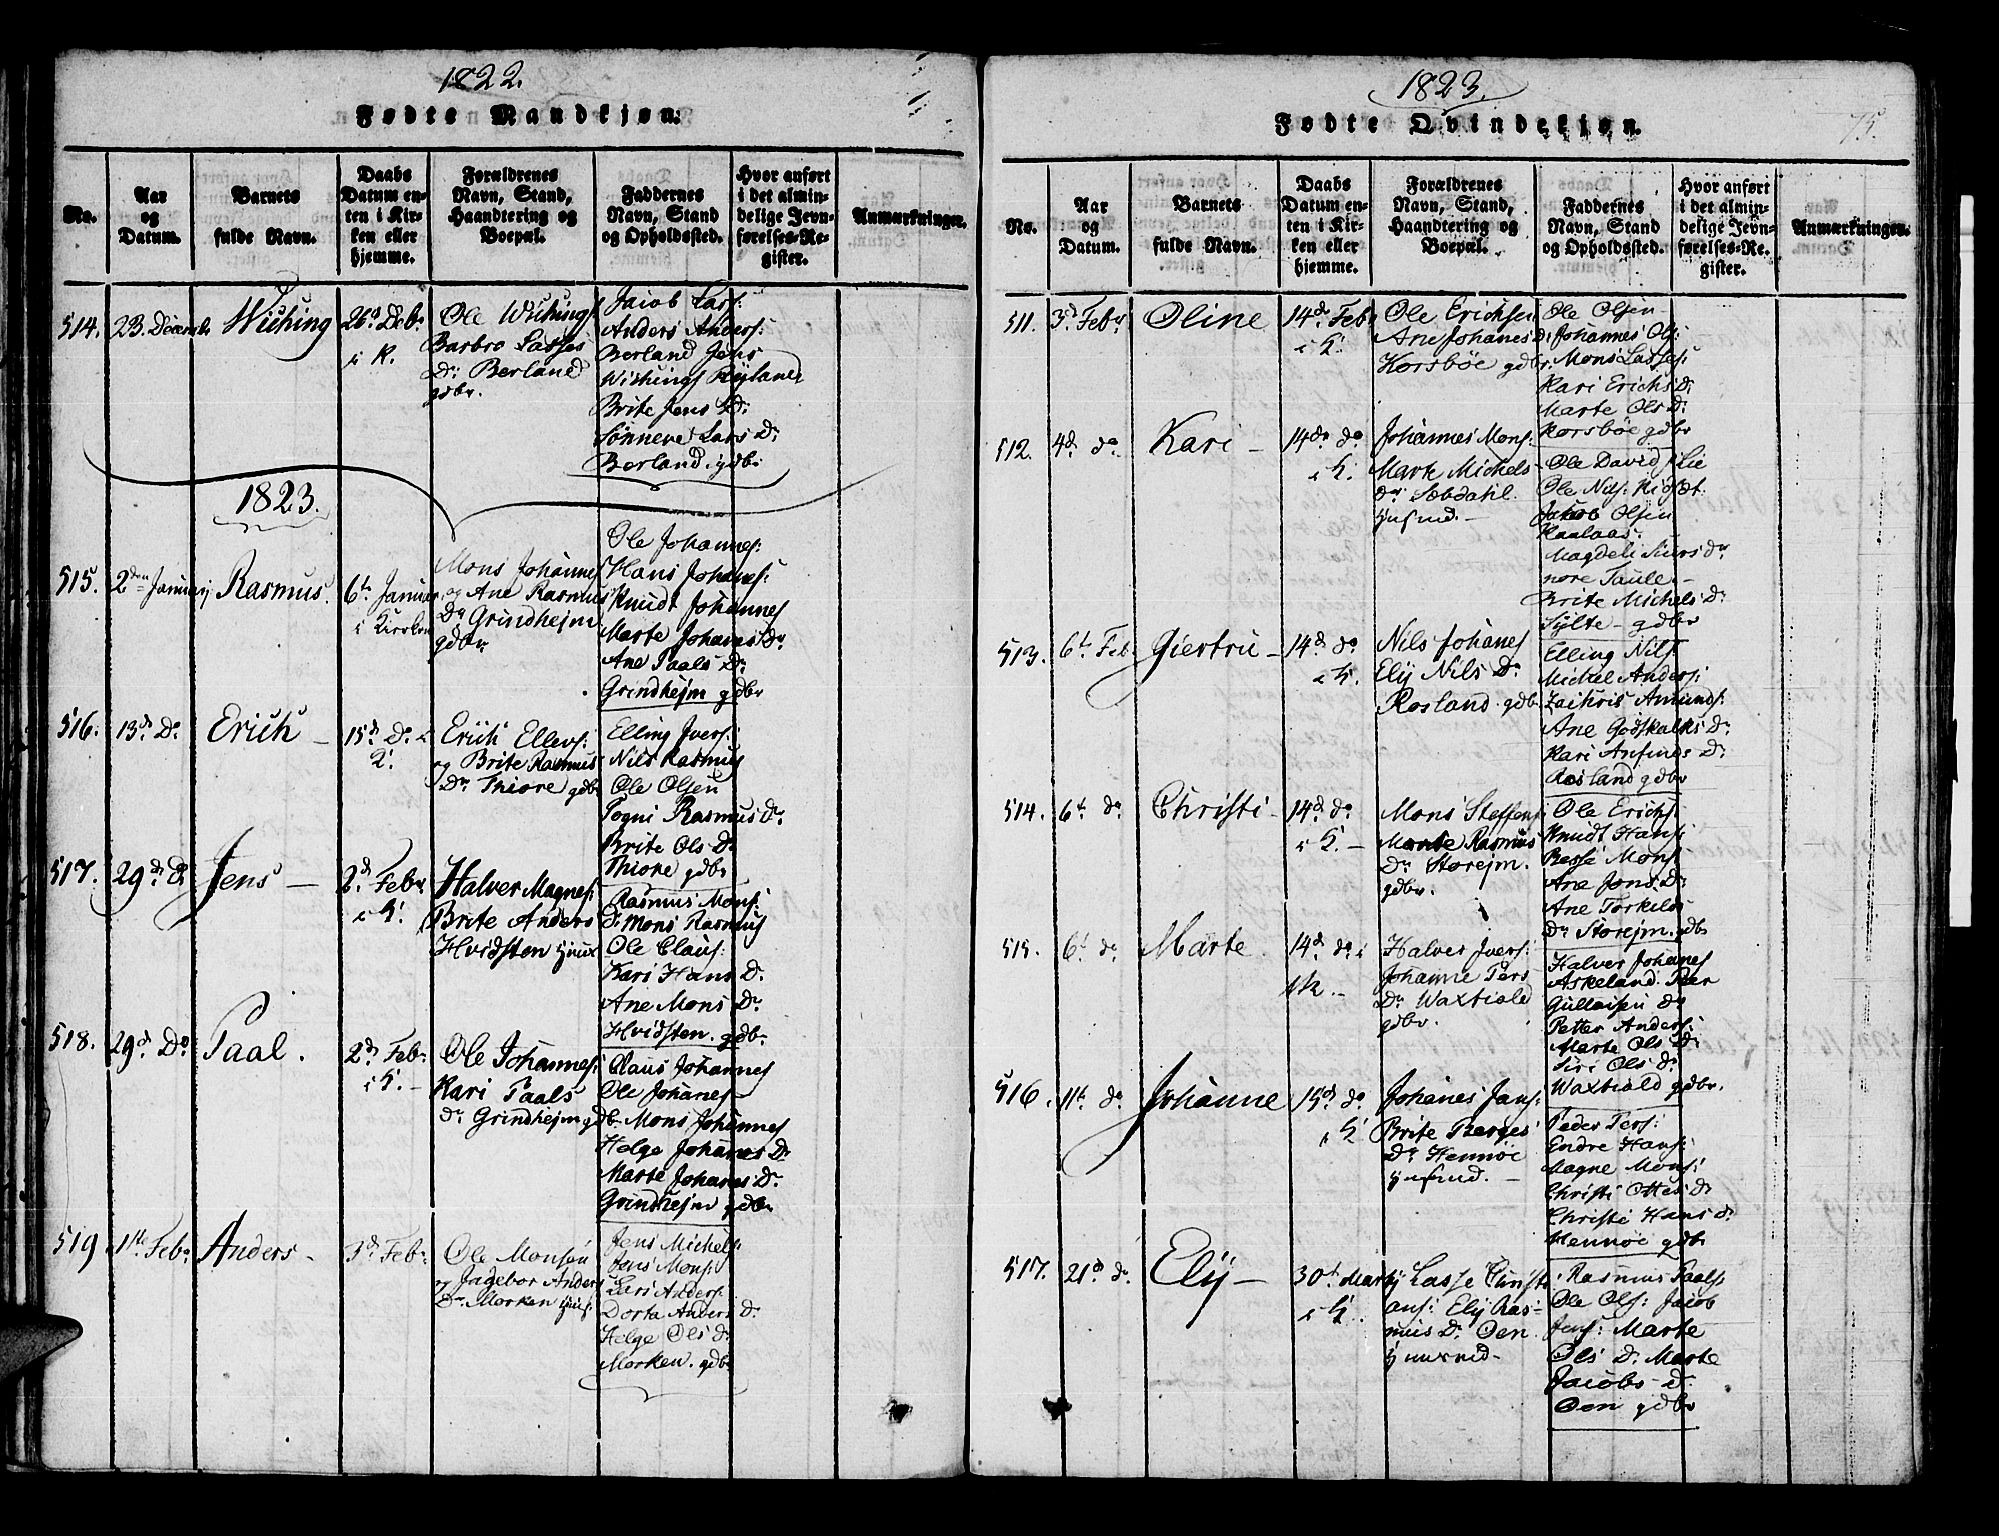 1822.
Fødte Mandkjøn.
No.
Aar
og
Datum.
Barnets
fulde Navn.
Daabs
Datum en-
ten i Kir-
ken eller
hjemme.
Forældrenes
Navn, Stand,
Haandtering og
Boepæl.
Faddernes
Navn, Stand
og Opholdssted.
Hvor anført
i det almin-
delige Jevn-
førelses-Re-
gister.
Anmærkninger.
514.
23. Decemb
Wiching
26d Deb.
i K.
Ole Wichings:
Barbro Lasses
Dr Berland
gdbr.
Jacob Lars:
Anders Anders:
Berland Jens
Wichings Ryland
Brite Jens D:
Sønneve Lars D:
Berland. gdbr
1823.
515.
2den Januarij
Rasmus.
6te Januar
i Kirken
Mons Johannes
og Ane Rasmus
Dr Grindhejm
gdbr
Ole Johannes:
Hans Johanes:
Knudt Johannes
Marte Johanes Dr
Ane Paals Dr
Grindhejm gdbr
516.
13d Do
Erich —
15d Do i
K.
Erich Ellevs:
og Brite Rasmus
Dr Thiore gdbr
Elling Ivers:
Nils Rasmus
Ole Olsen
Togni Rasmus Dr
Brite Ols Dr
Thiore gdbr
517.
29d Do
Jens —
2d Febr
i K.
Halver Magnes:
Brite Anders
Hvidsten
Rasmus Mons:
Dr Mons Rasmus
Ole Claus:
Kari Hans Dr
Ane Mons Dr
Hvidsten. gdbr
518.
29d Do
Paal.
2d Febr
i K. —
Ole Johannes:
Kari Paals
dr Grindhejm gdbr
Claus Johannes
Ole Johanes
Mons Johannes
Helge Johanes Dr
Marte Johanes Dr
Grindhejm gdbr
519
1ste Febr
Anders —
3d Febr
Ole Monsen
og Ingebor Anders
Dr Morken
Jens Michels:
Jens Mons:
Lars Anders:
Dorta Anders D:
Helge Ols dr
Morken. gdbr
1823.
75.
Fødte Qvindekjøn.
No.
Aar
og
Datum.
Barnets
fulde Navn.
Daabs
Datum en-
ten i Kir-
ken eller
hjemme.
Forældrenes
Navn, Stand,
Haandtering og
Boepæl.
Faddernes
Navn, Stand
og Opholdssted.
Hvor anført
i det almin-
delige Jevn-
førelses-Re-
gister.
Anmærkninger.
511.
3d Febr
Oline
14d Febr
i K.
Ole Erichsen
Ane Johanes Dr
Korsbøe gdbr.
Ole Olsen
Johannes Ols:
Mons Lasses:
Kari Erichs Dr
Marte Ols Dr
Korsbøe gdbr
512.
4d do
Kari —
14de do
i K.
Johannes Mons:
Marte Michels
dr Sæbdahl.
Ole David Lie
Ole Nils:
Jakob Olsen
Haalaas.
Magdeli Siurs dr
nore Taule —
Brite Michels Dr
Sylte — gdbr
513.
6t Feb.
Giertru —
14d do
i K.
Nils Johanes
Elij Nils Dr
Rosland. gdbr
Elling Nils
Michel Anders:
Zachris Amunds:
Ane Godskalks Dr
Kari Anfines Dr
Rosland gdbr
514.
6t do
Christi —
14d do
i K. —
Mons Steffens:
Marte Rasmus
Dr Storejm.
gdbr.
Ole Erichs:
Knudt Hans:
Besse Mons:
Ane Jons Dr
Ane Torkilds
Dr Storejm. gdbr
515.
6t do
Marte.
14d do i
K. —
Halver Ivers:
Johanne Pers
Dr Waxtiald
gdbr.
Halver Johanes
Askeland. Peer
Gullaisen do
Petter Anders:
Marte Ols Dr
Siri Ols Dr
Waxtiald gdbr.
516.
11t do
Johanne
15d do
i K
Johanes Jans:
Brite Børges
Dr Hennøe
Peder Pers:
Endre Hans:
Magne Mons:
Christi Ottes Dr
Christi Hans dr
Hennøe gdbr
517.
21d d:
Elij —
30t Martij
i K.
Lasse Christi
ans: Elij Ras-
mus Dr Oen.
Rasmus Paals:
Ole Ols: Jacob
Jens: Marte
Ols Dr Marte
Jacobs Dr
Oen gdbr